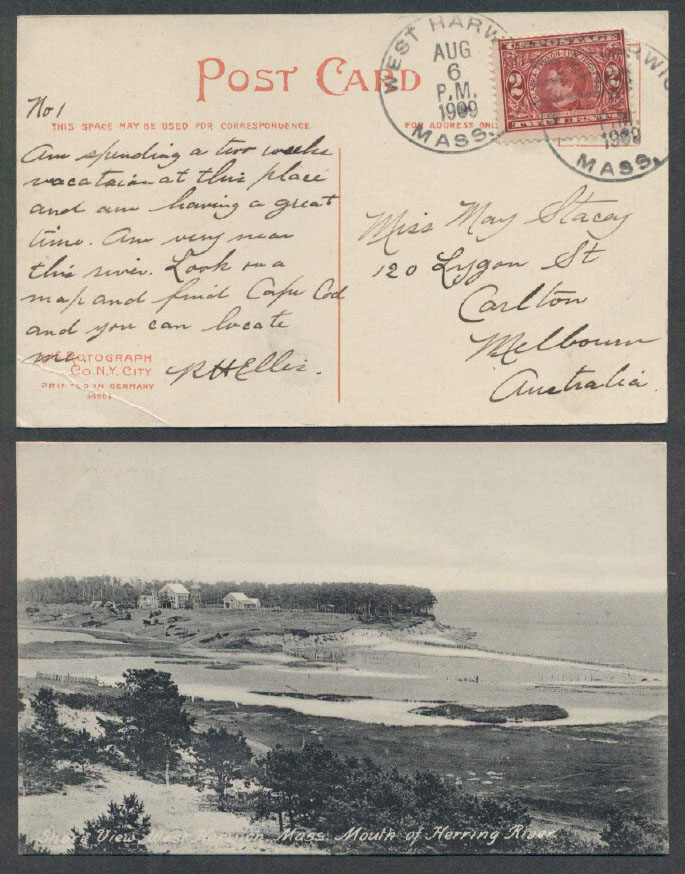 POST CARD
WEST HARWI
AUG
6
P.M.
1909
MASS.
2
2
ARWIC
1909
MASS.
No 1
THIS SPACE MAY BE USED FOR CORRESPONDENCE
FOR ADDRESS ONL
Am spending a two weeks
vacataion at this place
and am having a great
time. Am very near
this river. Look on a
map and find Cape Cod
and you can locate
me.
RHEllis.
ROTOGRAPH
CO. N.Y. CITY
PRINTED IN GERMANY
Miss May Stacey
120 Lygon St
Carlton
Melbourn
Australia.
Shore View West Harwich, Mass. Mouth of Herring River